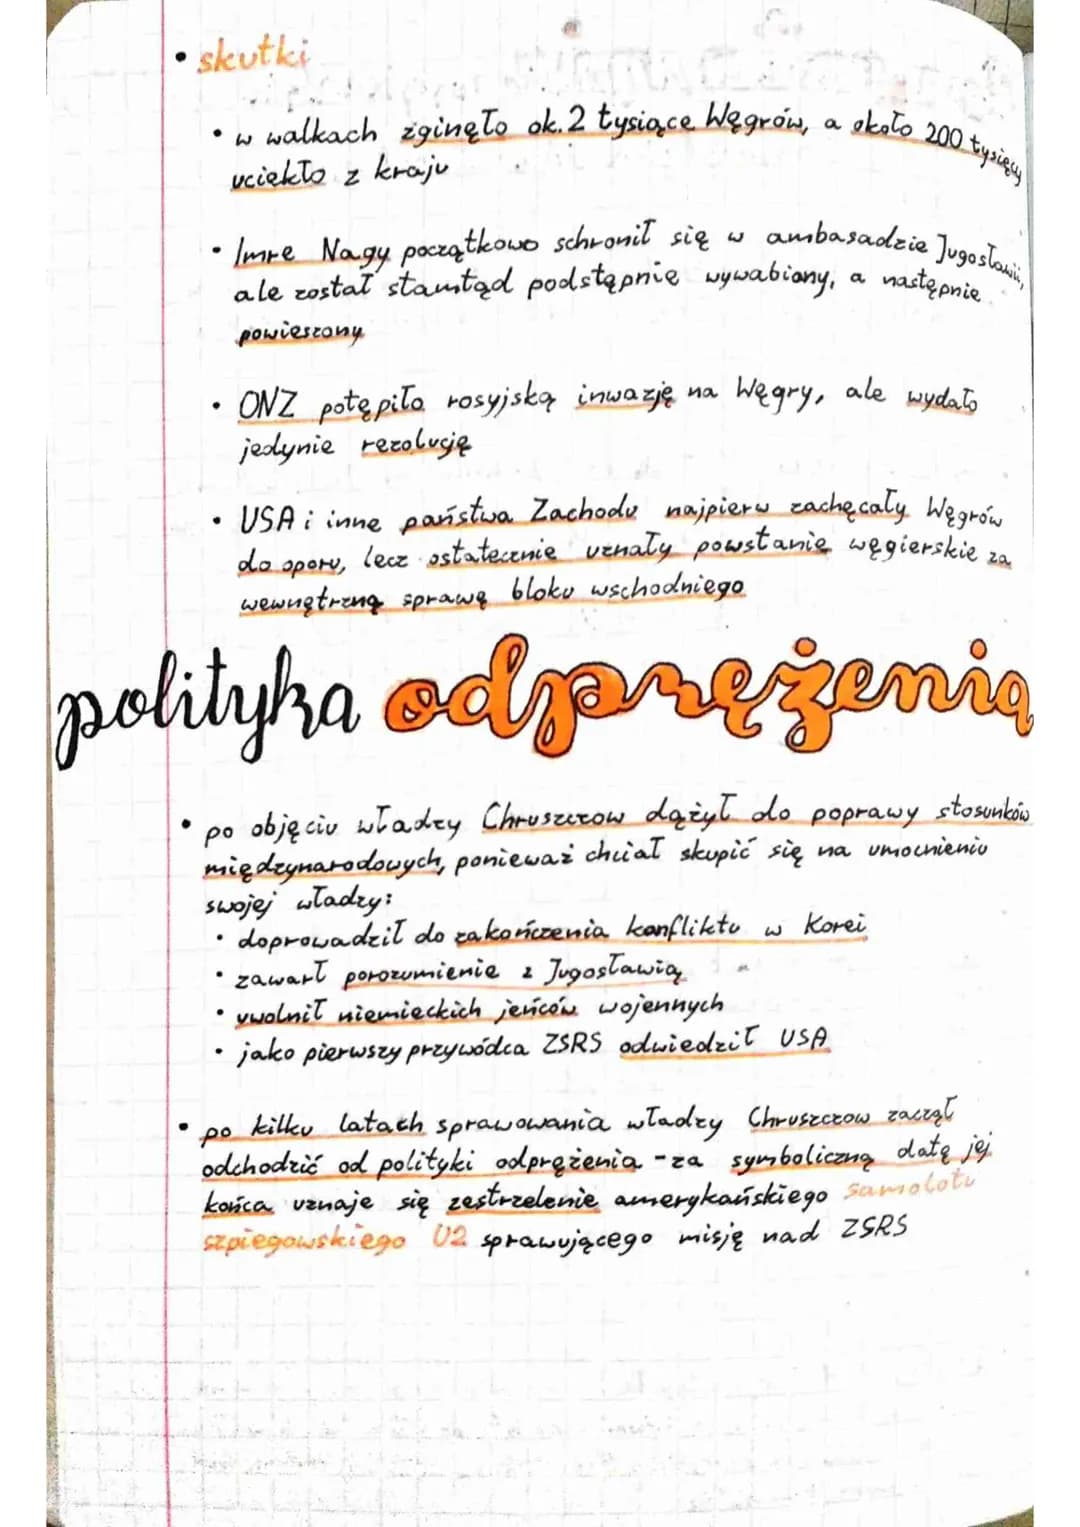 • skutki
• w walkach zginęło ok. 2 tysiące Węgrów, a około 200 tysięcy
uciekło z kraju
• Imre Nagy początkowo schronił się w ambasadzie Jugosławii,
ale został stamtąd podstępnie wywabiany, a następnie
powieszony
• ONZ potępiło rosyjską inwazję na Węgry, ale wydało
jedynie rezolucję
• USA i inne państwa Zachodu najpierw zachęcały Węgrów
do oporu, lecz ostatecznie uznały powstanie węgierskie za
wewnętrzną sprawę bloku wschodniego
polityka odprężenia
• po objęciu władzy Chruszczow dążył do poprawy stosunków
międzynarodowych, ponieważ chciał skupić się na umocnieniu
swojej władzy:
• doprowadził do zakończenia konfliktu w Korei
• zawarł porozumienie z Jugosławią
• uwolnił niemieckich jeńców wojennych
• jako pierwszy przywódca ZSRS odwiedził USA
• po kilku latach sprawowania władzy Chruszczow zaczął
odchodzić od polityki odprężenia - za symboliczną datę jej
końca uznaje się zestrzelenie amerykańskiego samolotu
szpiegowskiego U2 sprawującego misję nad ZSRS